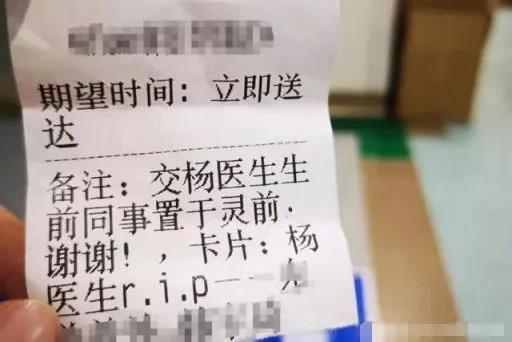 期望时间：立即送
达
备注：交杨医生生
前同事置于灵前，
谢谢！，卡片：杨
医生r.i.p一一